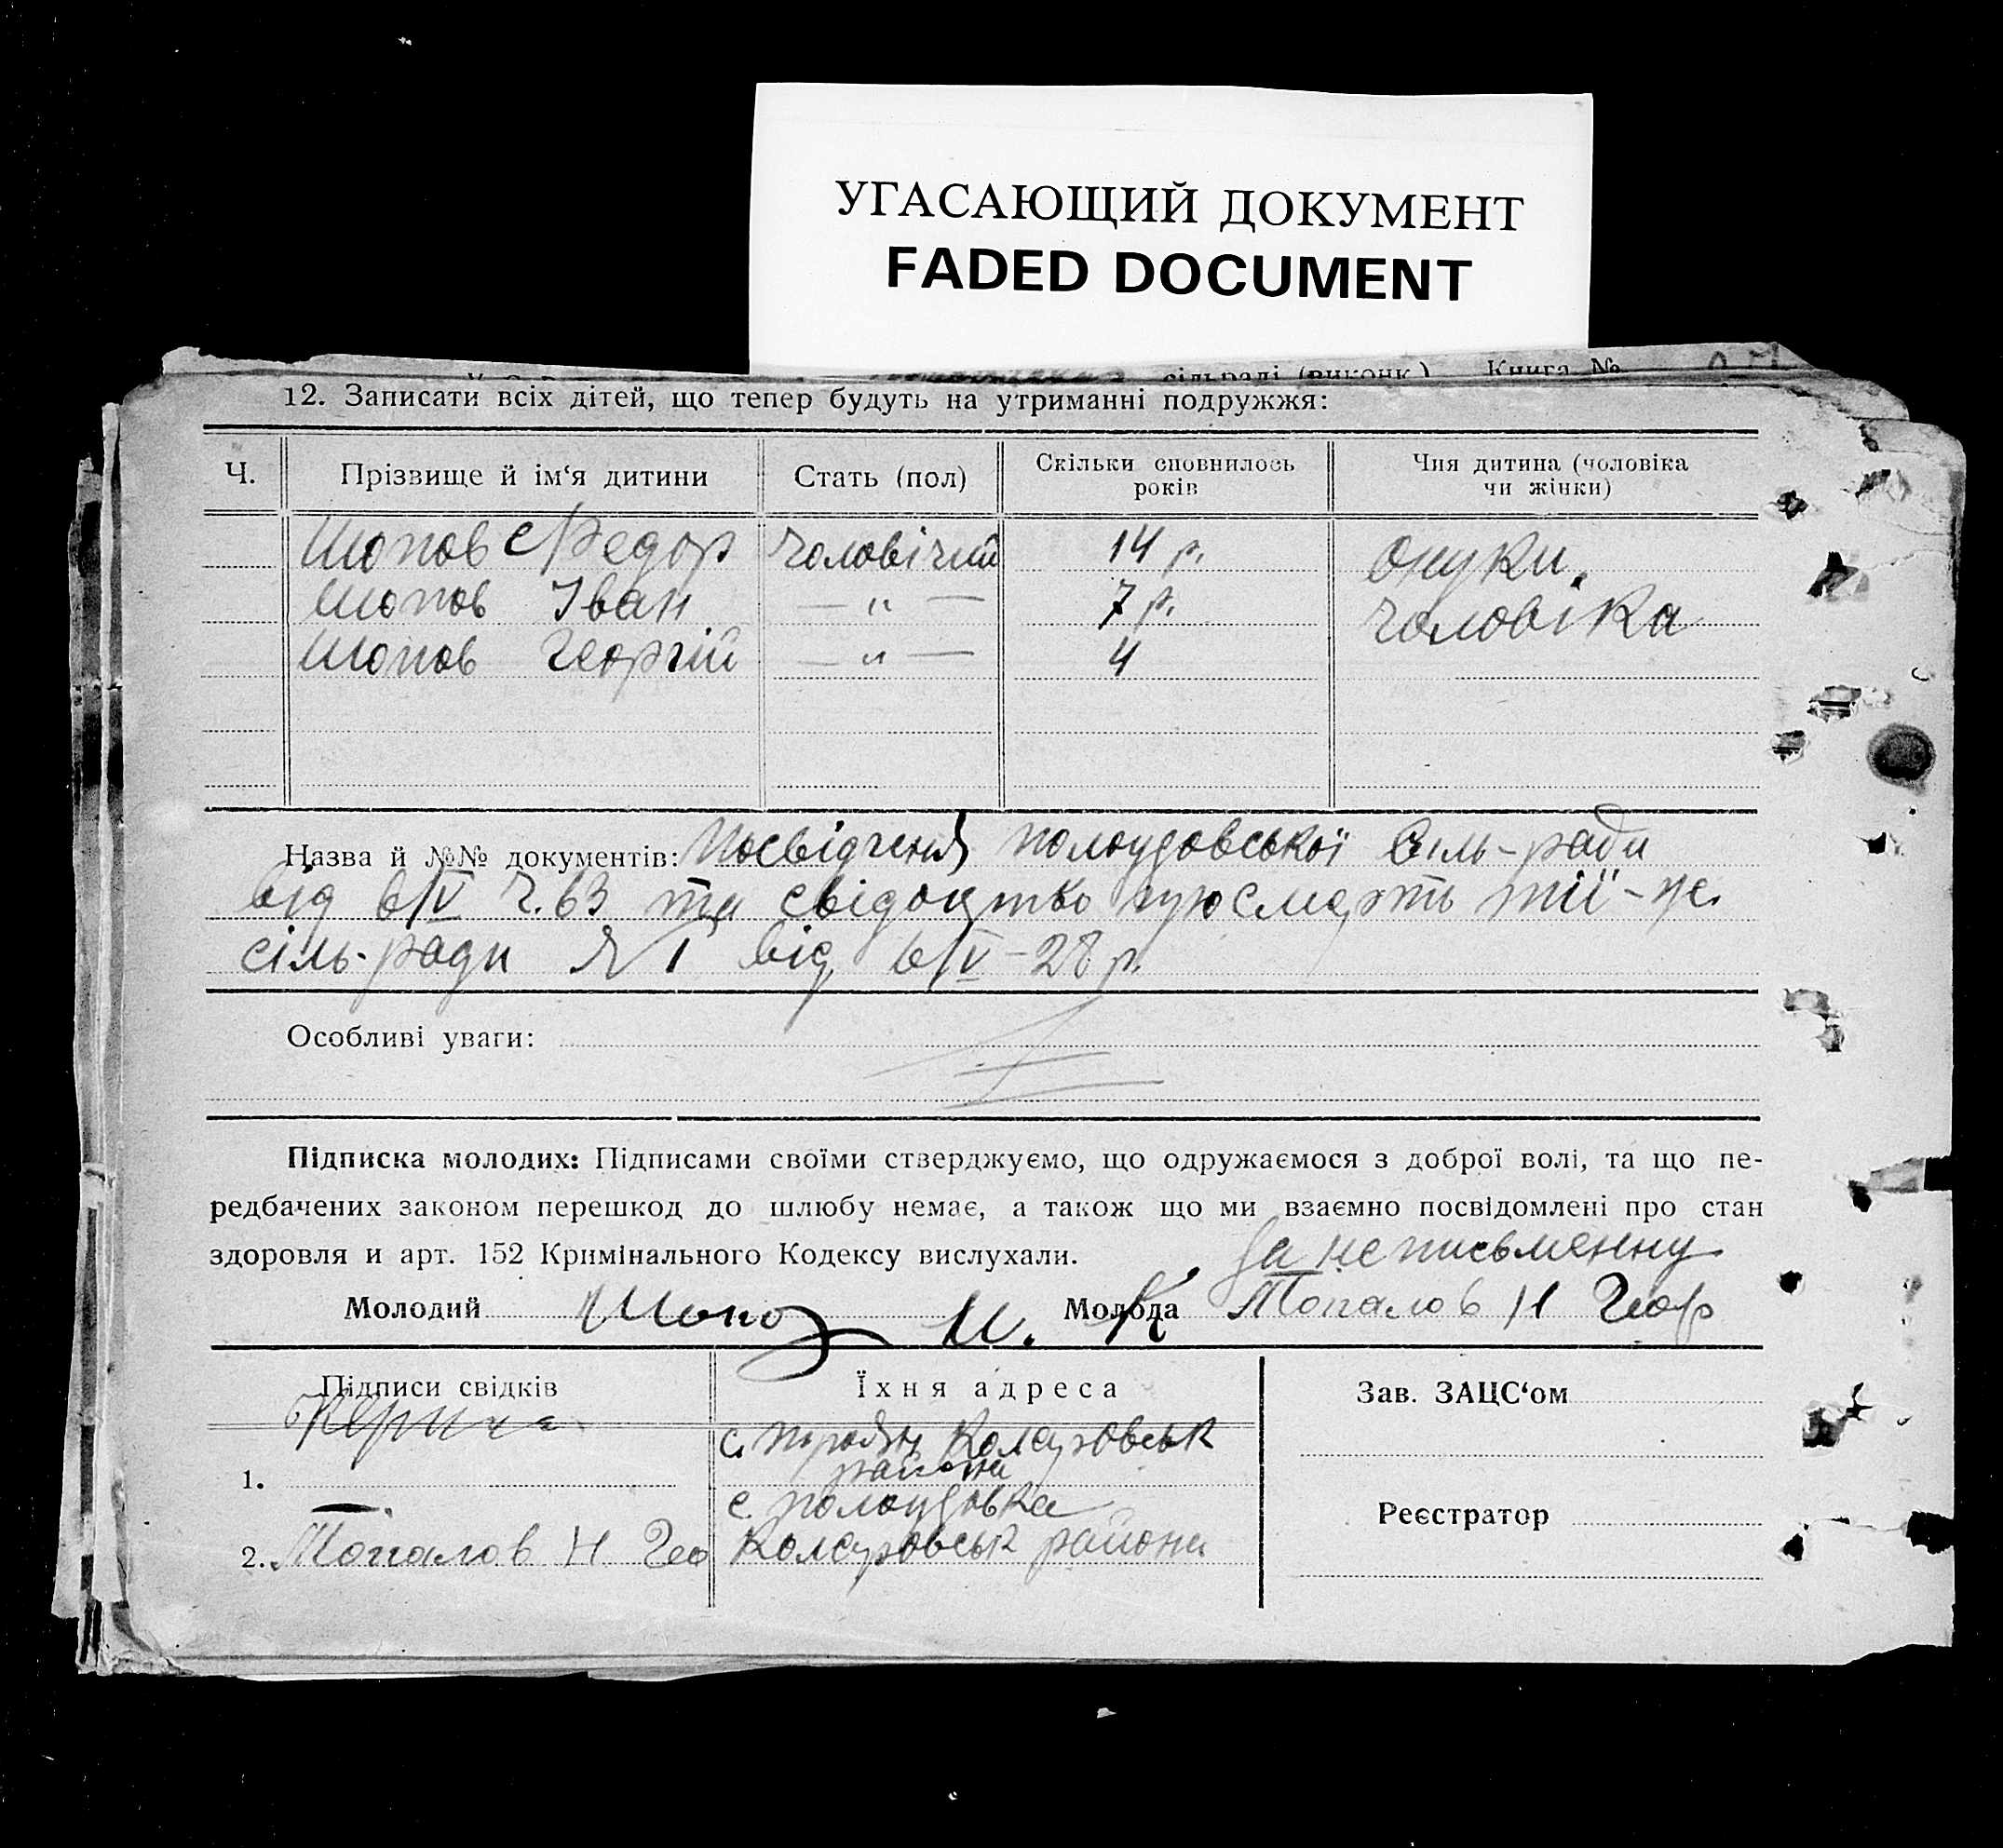 УГАСАЮЩИЙ ДОКУМЕНТ
FADED DOCUMENT
сільраді (виконк.) Книга №
12. Записати всіх дітей, що тепер будуть на утриманні подружжя:
Ч. Прізвище й ім‘я дитини Стать (пол) Скільки сповнилось років Чия дитина (чоловіка чи жінки)
Шопов Федор чоловічий 14 р. онуки
Шопов Іван — " — 7 р. чоловіка
Шопов Георгій — " — 4
Назва й №№ документів: Посвідчення сіль-ради
від 6/IV ч. 63 та про смерть тії-же
сіль-ради № 1 від 6/IV-28 р.
Особливі уваги:
Підписка молодих: Підписами своїми стверджуємо, що одружаємося з доброї волі, та що пе-
редбачених законом перешкод до шлюбу немає, а також що ми взаємно посвідомлені про стан
здоровля и арт. 152 Кримінального Кодексу вислухали.
за неписьменну
Молодий Шопов И. К. Молода Топалов Н Геор
Підписи свідків Їхня адреса Зав. ЗАЦС‘ом
с.
района
1.
с.
Реєстратор
2. Топалов Н Гео района